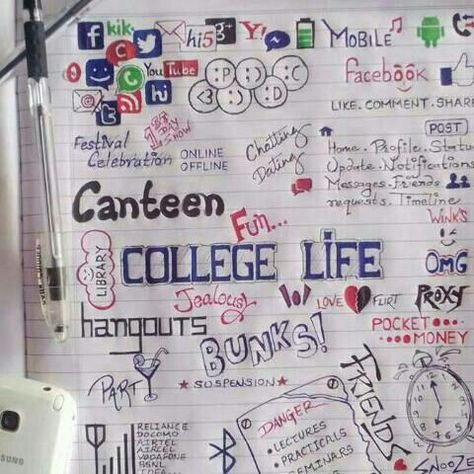 kik
hi5
g+
Y!
MOBILE
You Tube
facebook
hi
:P :D :C
<3 :) :D :)
LIKE. COMMENT. SHARE
POST
1st DAY NOW
Festival Celebration
ONLINE
OFFLINE
Chatting
Dating
Home. Profile. Status
Update. Notifications
Messages. friends
requests. Timeline
WINKS
Canteen
Fun...
LIBRARY
COLLEGE LIFE
OMG
Jealousy
LOVE FLIRT
PROXY
hangouts
BUNKS!
POCKET
MONEY
PARTY
SUSPENSION
FRIENDS
DANGER
LECTURES
PRACTICALS
SEMINARS
RELIANCE
DOCOMO
AIRTEL
AIRCEL
VODAFONE
BSNL
IDEA
SNOOZE
SAMSUNG